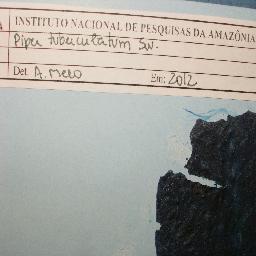 INSTITUTO NACIONAL DE PESQUISAS DA AMAZÔNIA
Piper tuberculatum Sw.
Det. A. Melo Em: 2012